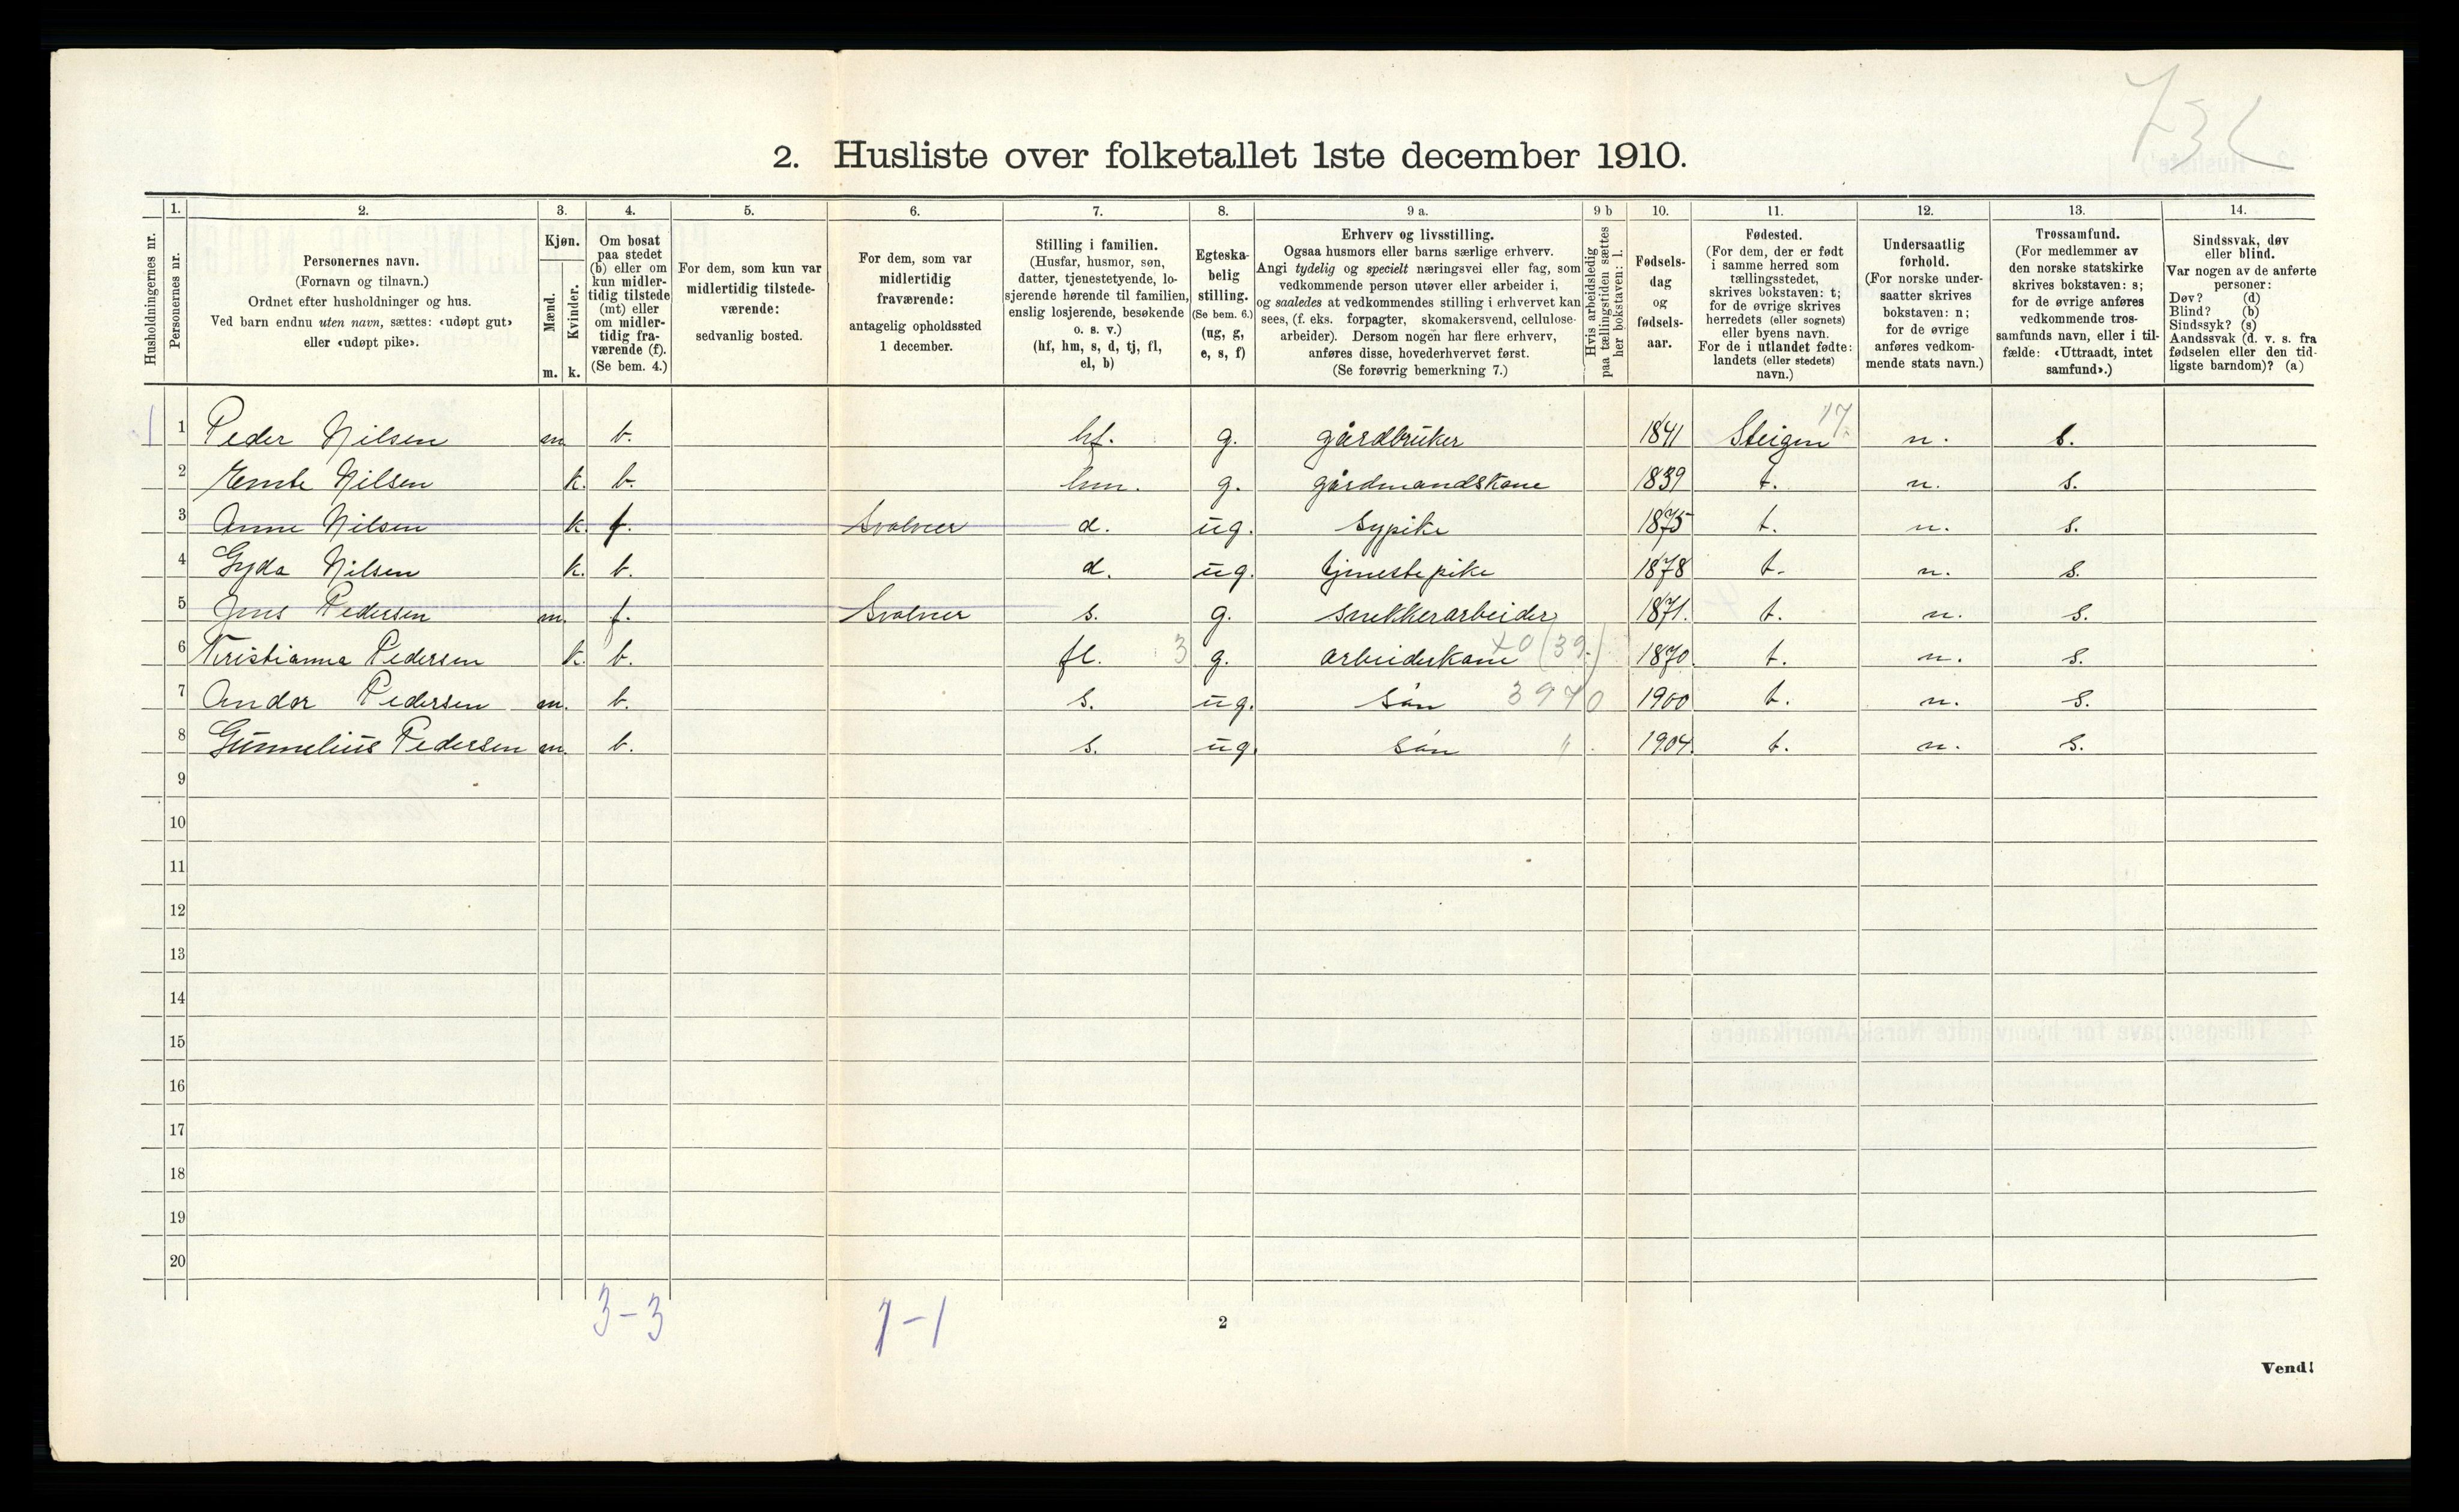 73
2. Husliste over folketallet 1ste december 1910.
1. 2. 3. 4. 5. 6. 7. 8. 9 a. 9 b 10. 11. 12. 13. 14.
Husholdningernes nr.
Personernes nr.
Personernes navn.
(Fornavn og tilnavn.)
Ordnet efter husholdninger og hus.
Ved barn endnu uten navn, sættes: «udøpt gut»
eller «udøpt pike».
Kjøn.
Mænd.
Kvinder.
m. k.
Om bosat
paa stedet
(b) eller om
kun midler-
tidig tilstede
(mt) eller
om midler-
tidig fra-
værende (f).
(Se bem. 4.)
For dem, som kun var
midlertidig tilstede-
værende:
sedvanlig bosted.
For dem, som var
midlertidig
fraværende:
antagelig opholdssted
1 december.
Stilling i familien.
(Husfar, husmor, søn,
datter, tjenestetyende, lo-
sjerende hørende til familien,
enslig losjerende, besøkende
o. s. v.)
(hf, hm, s, d, tj, fl,
el, b)
Egteska-
belig
stilling.
(Se bem. 6.)
(ug, g,
e, s, f)
Erhverv og livsstilling.
Ogsaa husmors eller barns særlige erhverv.
Angi tydelig og specielt næringsvei eller fag, som
vedkommende person utøver eller arbeider i,
og saaledes at vedkommendes stilling i erhvervet kan
sees, (f. eks. forpagter, skomakersvend, cellulose-
arbeider). Dersom nogen har flere erhverv,
anføres disse, hovederhvervet først.
(Se forøvrig bemerkning 7.)
Hvis arbeidsledig
paa tællingstiden sættes
her bokstaven: l.
Fødsels-
dag
og
fødsels-
aar.
Fødested.
(For dem, der er født
i samme herred som
tællingsstedet,
skrives bokstaven: t;
for de øvrige skrives
herredets (eller sognets)
eller byens navn.
For de i utlandet fødte:
landets (eller stedets)
navn.)
Undersaatlig
forhold.
(For norske under-
saatter skrives
bokstaven: n;
for de øvrige
anføres vedkom-
mende stats navn.)
Trossamfund.
(For medlemmer av
den norske statskirke
skrives bokstaven: s;
for de øvrige anføres
vedkommende tros-
samfunds navn, eller i til-
fælde: «Uttraadt, intet
samfund».)
Sindssvak, døv
eller blind.
Var nogen av de anførte
personer:
Døv? (d)
Blind? (b)
Sindssyk? (s)
Aandssvak (d. v. s. fra
fødselen eller den tid-
ligste barndom)? (a)
17
1 1 Peder Nilsen m b. hf. g. gårdbruker 1841 Steigen n. s.
2 Nilsen k. b. hm. g. gårdmandskone 1839 t. n. s.
3 Anne Nilsen k. f. Svolvær d. ug. sypike 1875 t. n. s.
4 Gyda Nilsen k. b. d. ug. tjenestepike 1878 t. n. s.
5 Jens Pedersen m. f. Svolvær s. g. snekkerarbeider 1871. t. n. s.
6 Kristianna Pedersen k. b. fl. 3 g. arbeiderkone (39.) 1870. t. n. s.
7 Andor Pedersen m. b. s. ug. søn 3970 1900 t. n. s.
8 Gunnelius Pedersen m. b. s. ug. søn " 1904. t. n. s.
9
10
11
12
13
14
15
16
17
18
19
20
3-3 1-1
2
Vend!